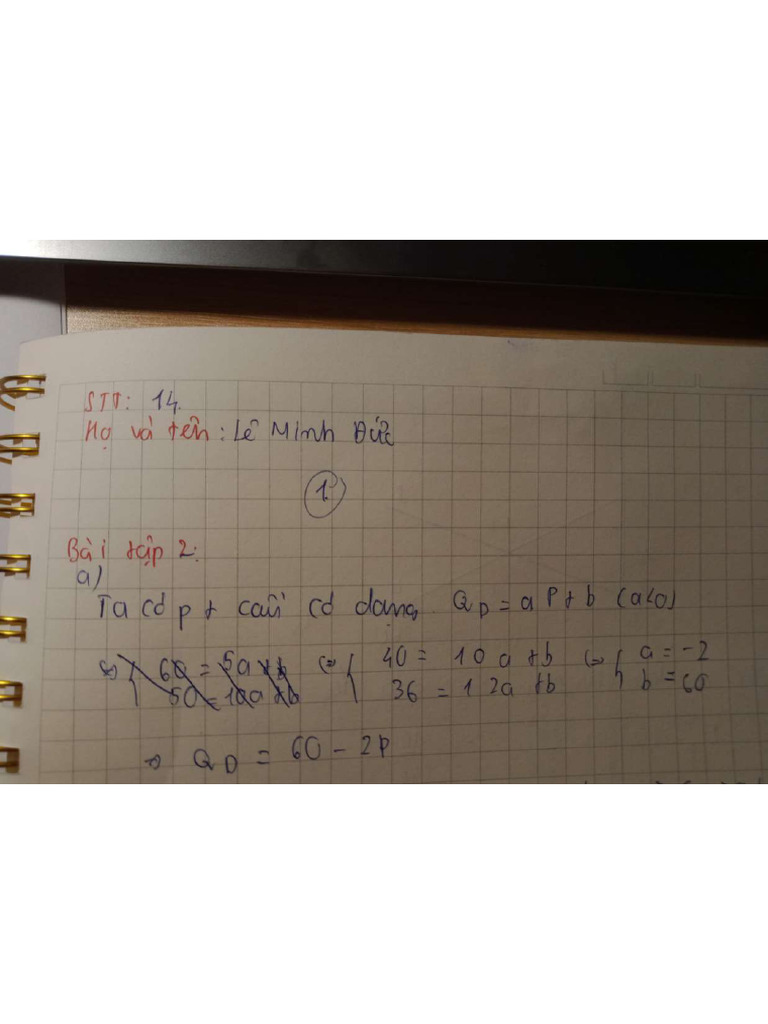 STT: 14.
Họ và tên: Lê Minh Đức
1
Bài tập 2:
a)
Ta có pt cầu có dạng Q_D = aP + b (a<0)
⇔ { 60 = 5a + b ⇔ { 40 = 10a + b ⇔ { a = -2
50 = 10a + b 36 = 12a + b b = 60
⇒ Q_D = 60 - 2P